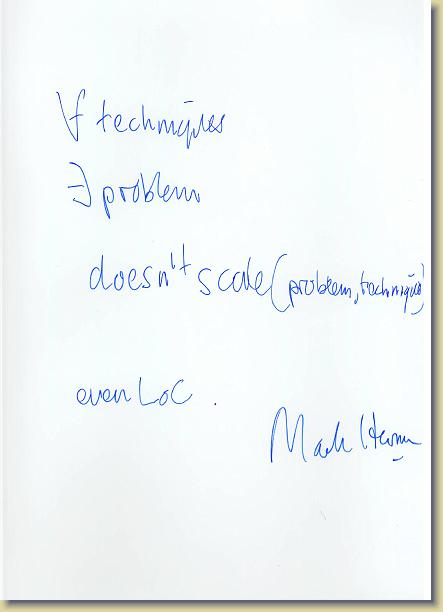 ∀ techniques
∃ problem
doesn't scale (problem, technique)
even LoC .
Mark Harman